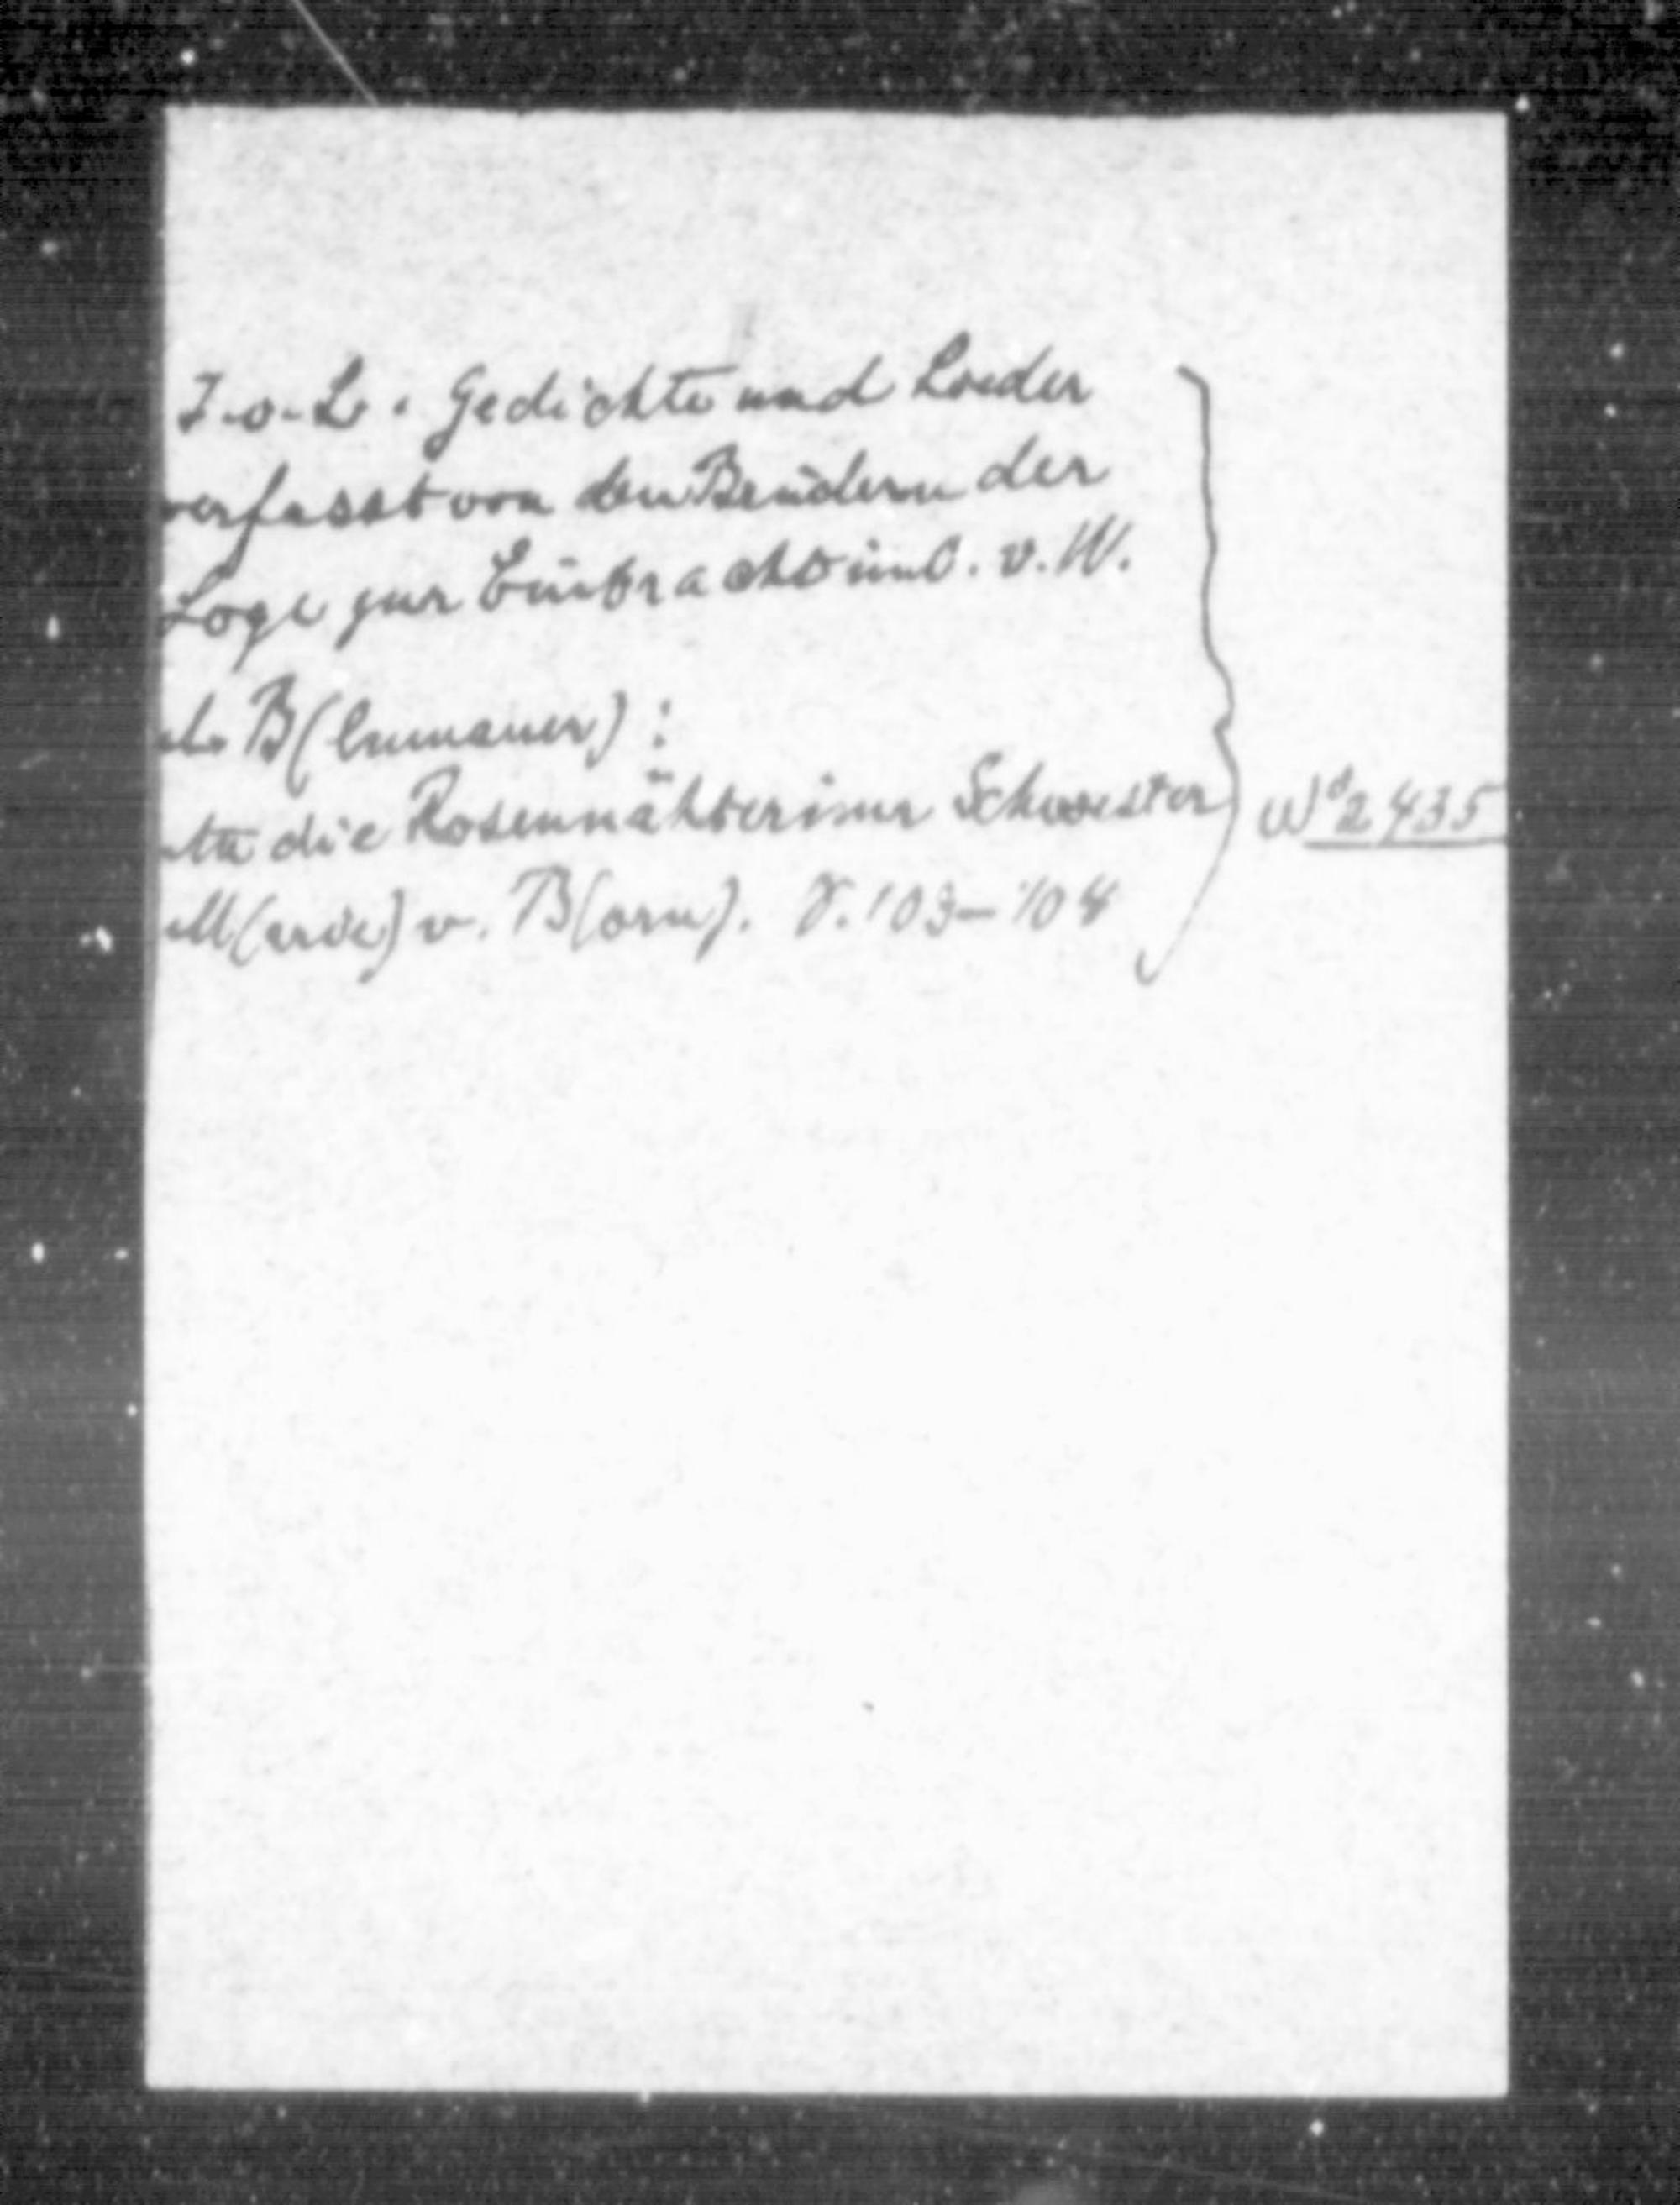 J.o.L. Gedichte und Lieder
verfasst von den Brüdern der
Loge zur Eintracht im O. v. W.
B(lumauer):
die Rosennähterinnr Schwester
M(arie) v. B(orn). S. 103–104
W 2435